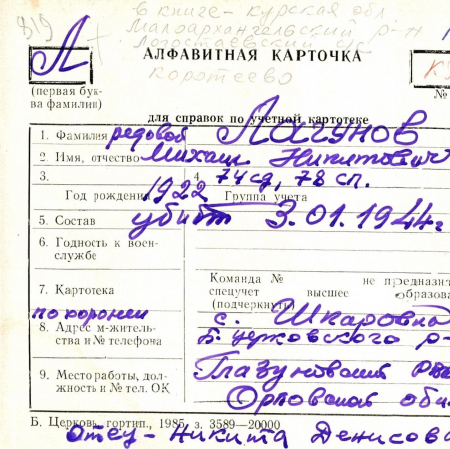 819
в книге - курская обл
Малоархангельский р-н
с/с
Коротеево
Л
АЛФАВИТНАЯ КАРТОЧКА
(первая бук-
ва фамилии)
№
для справок по учетной картотеке
1. Фамилия рядовой Лагунов
2. Имя, отчество Михаил Никитович
3. 4. 74 сд, 78 сп.
Год рождения 1922 Группа учета
5. Состав убит 3.01.1944г
6. Годность к воен-
службе
Команда № не предназна
7. Картотека спецучет высшее образова
(подчеркнуть)
похоронен с. Шкаровка
8. Адрес м-житель-
ства и № телефона Б. Церковского р-
9. Место работы, дол-
жность и № тел. ОК Глазуновский
Орловская обл
Б. Церковь, гортип., 1985, з. 3589—20000
Отец - Никита Денисов